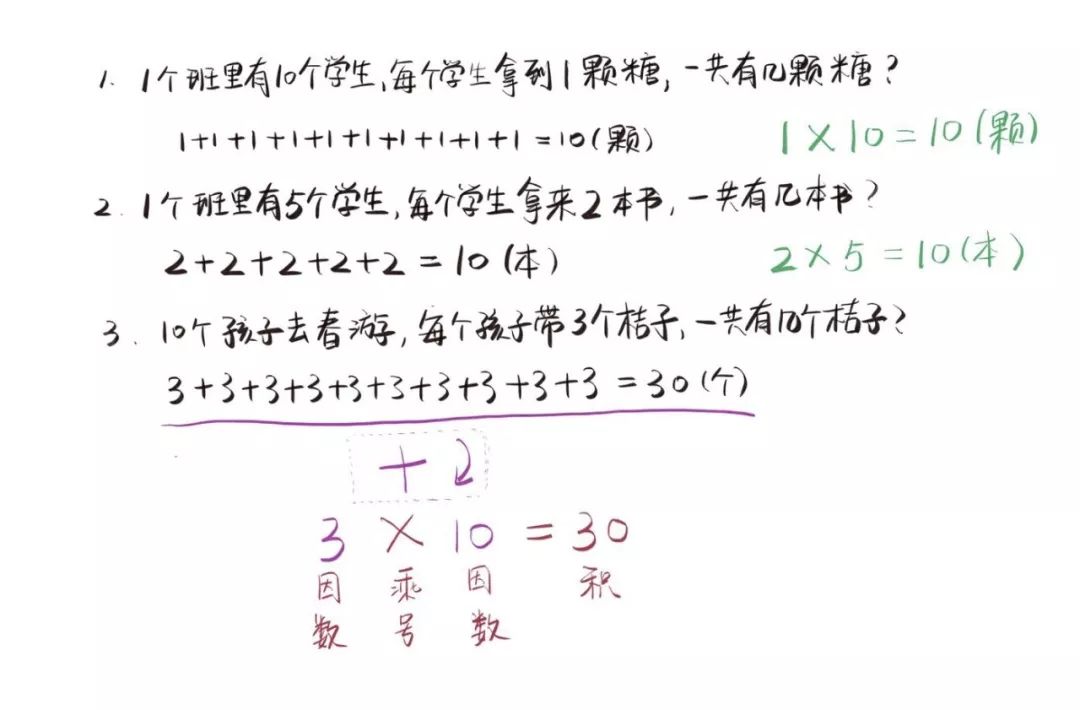 1. 1个班里有10个学生,每个学生拿到1颗糖,一共有几颗糖?
1+1+1+1+1+1+1+1+1+1=10(颗) 1×10=10(颗)
2. 1个班里有5个学生,每个学生拿来2本书,一共有几本书?
2+2+2+2+2=10(本) 2×5=10(本)
3. 10个孩子去春游,每个孩子带3个桔子,一共有几个桔子?
3+3+3+3+3+3+3+3+3+3=30(个)
+
3×10=30
因数 乘号 因数 积